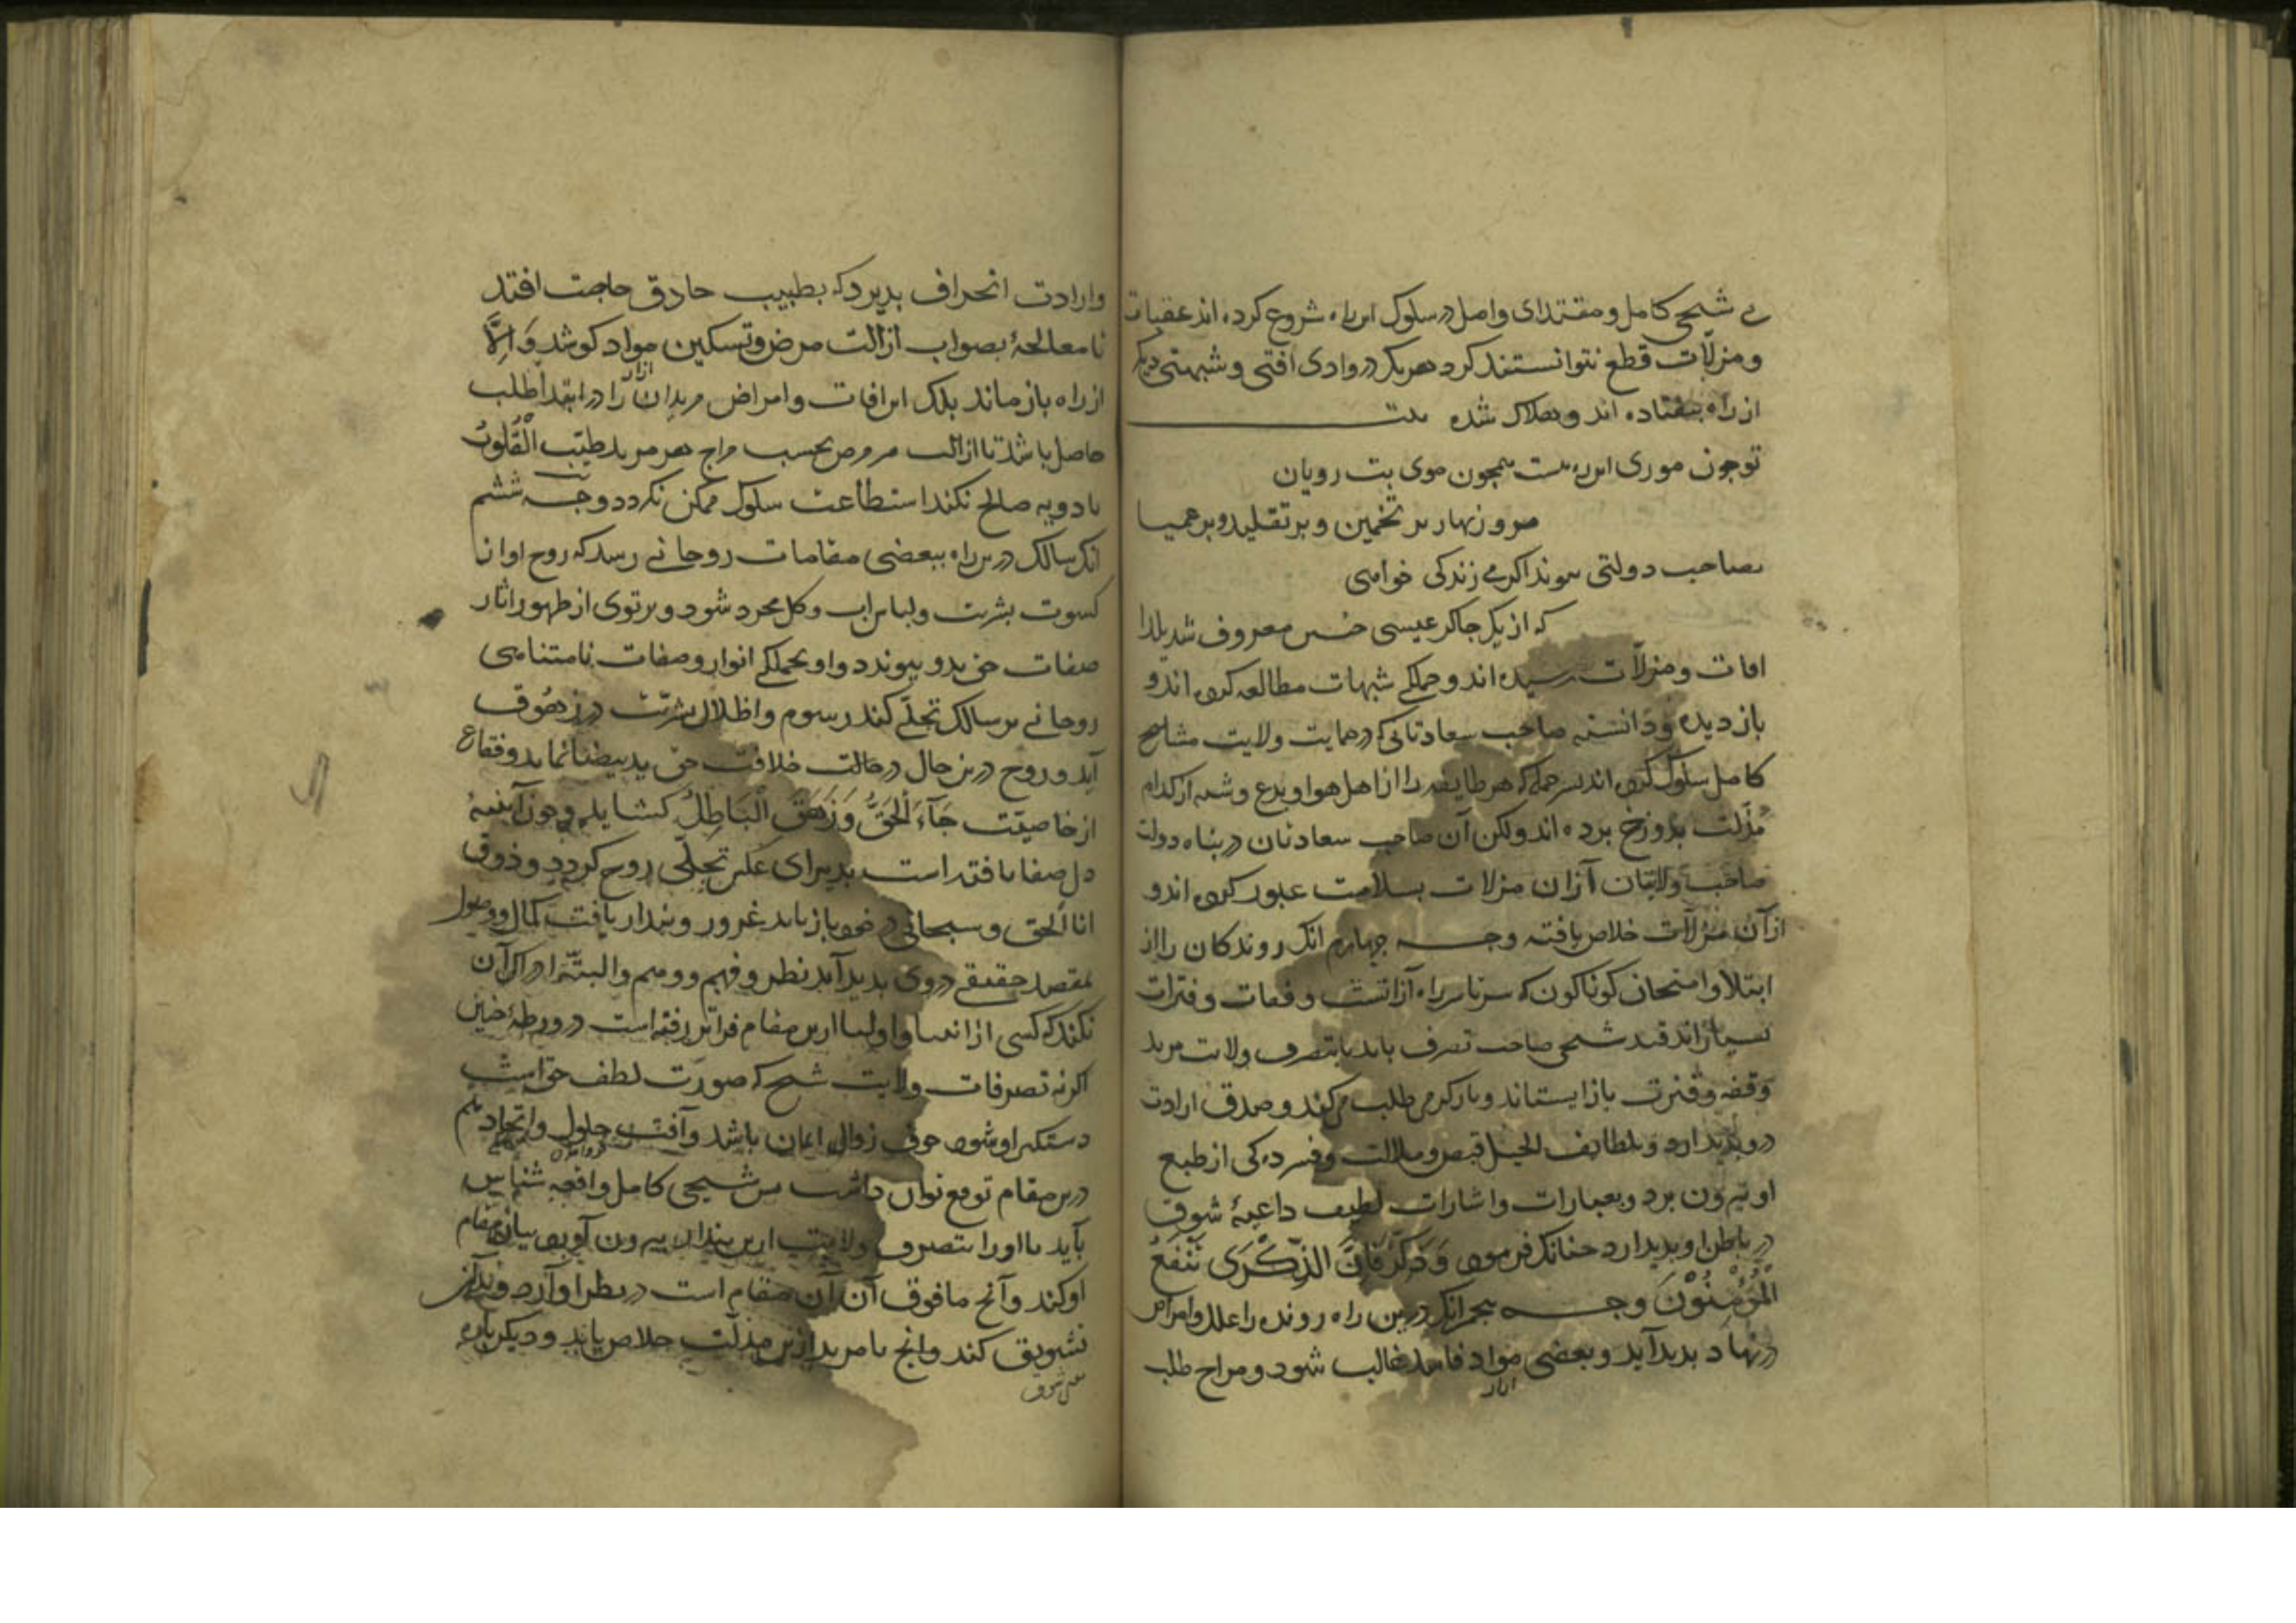 بی شیخی کامل و مقتدای واصل در سلوک این راه شروع کرده اند عقبات
و مزلات قطع نتوانستند کرد هریک در وادی افتی و شبهتی دیگر
از راه بیفتاده اند و هلاک شده بیت
تو چون موری این ره هست همچون موی بت رویان
مرو زنهار بر تخمین و بر تقلید و بر عمیا
بصاحب دولتی پیوند اگر می زندگی خواهی
که از یک چاکر عیسی خسی معروف شد یلدا
افات و مزلات رسیده اند و جملگی شبهات مطالعه کرده اند و
باز دیده و دانسته صاحب سعادتانی که در حمایت ولایت مشایخ
کامل سلوک کرده اند بر جمله که هر طایفه را از اهل هوا و بدع و شبه از کدام
مزلت بدوزخ برده اند ولکن آن صاحب سعادتان در پناه دولت
صاحب ولایتان از آن مزلات بسلامت عبور کرده اند و
از آن مزلات خلاص یافته وجه چهارم آنک روندکان را از
ابتلا و امتحان کوناکون که سرتاسر راه از آنست وقفات و فترات
بسیار اند شیخی صاحب تصرف باید تا بتصرف ولایت مرید
وقفه و فترت باز ایستاند و باز کرمی طلب و صدق ارادت
در وی پدید ارد و بلطایف الحیل قبض و ملالت و فسرده کی از طبع
او بیرون برد و بعبارات و اشارات لطیف داعیهٔ شوق
در باطن او پدید ارد چنانک فرمود وَذَکِّرْ فَاِنَّ الذِّکْرَی تَنْفَعُ
الْمُؤْمِنُوْنَ وجه پنجم آنک درین راه رونده را علل و امراض
در نهاد پدید آید و بعضی مواد فاسد غالب شود و مزاج طلب
و ارادت انحراف پذیرد که بطبیب حاذق حاجت افتد
تا معالجهٔ بصواب ازالت مرض و تسکین مواد کوشد وَاِلَّا
از راه باز ماند بلک این افات و امراض مریدان را در ابتدا طلب
حاصل باشد تا ازالت هر مرض بحسب مزاج هر مرید طبیب القلوب
بادویه صالح نکند استطاعت سلوک ممکن نکردد وجه ششم
آنک سالک درین راه ببعضی مقامات روحانی رسد که روح او از
کسوت بشریت و لباس آب و کل مجرد شود و پرتوی از ظهور اثار
صفات حق بدو پیوندد و او بجملکی انوار و صفات نامتناهی
روحانی بر سالک تجلّی کند رسوم و اظلال بشریت در زهوق
آید و روح درین حال در حالت خلافت حق ید بیضا نماید و فقاع
از خاصیت جَآءَ الْحَقُّ وَزَهَقَ الْبَاطِلُ کشاید و چون آینهٔ
دل صفا یافته است پذیرای عکس تجلّی روح کردد و ذوق
انا الحق و سبحانی در خود باز یابد غرور و پندار یافت کمال و وصول
بمقصد حقیقی در وی پدید آید نظر و فهم و وهم والبتّه ادراک آن
نکند که کسی از انبیا و اولیا ازین مقام فراتر رفته است در ورطهٔ چنین
اکر نه تصرفات ولایت شیخ که صورت لطف حق است
دستکیر او شود خوف زوال ایمان باشد و آفت حلول و اتحاد هم
درین مقام توقع توان داشت پس شیخی کامل واقعه شناس
باید تا او را بتصرف ولایت ازین پندار بیرون آورد بیان مقام
او کند و آنچ مافوق آن مقام است در نظر او آرد و بدآن
تشویق کند و آنچ تا مرید ازین مذلت خلاص یابد و دیکرباره